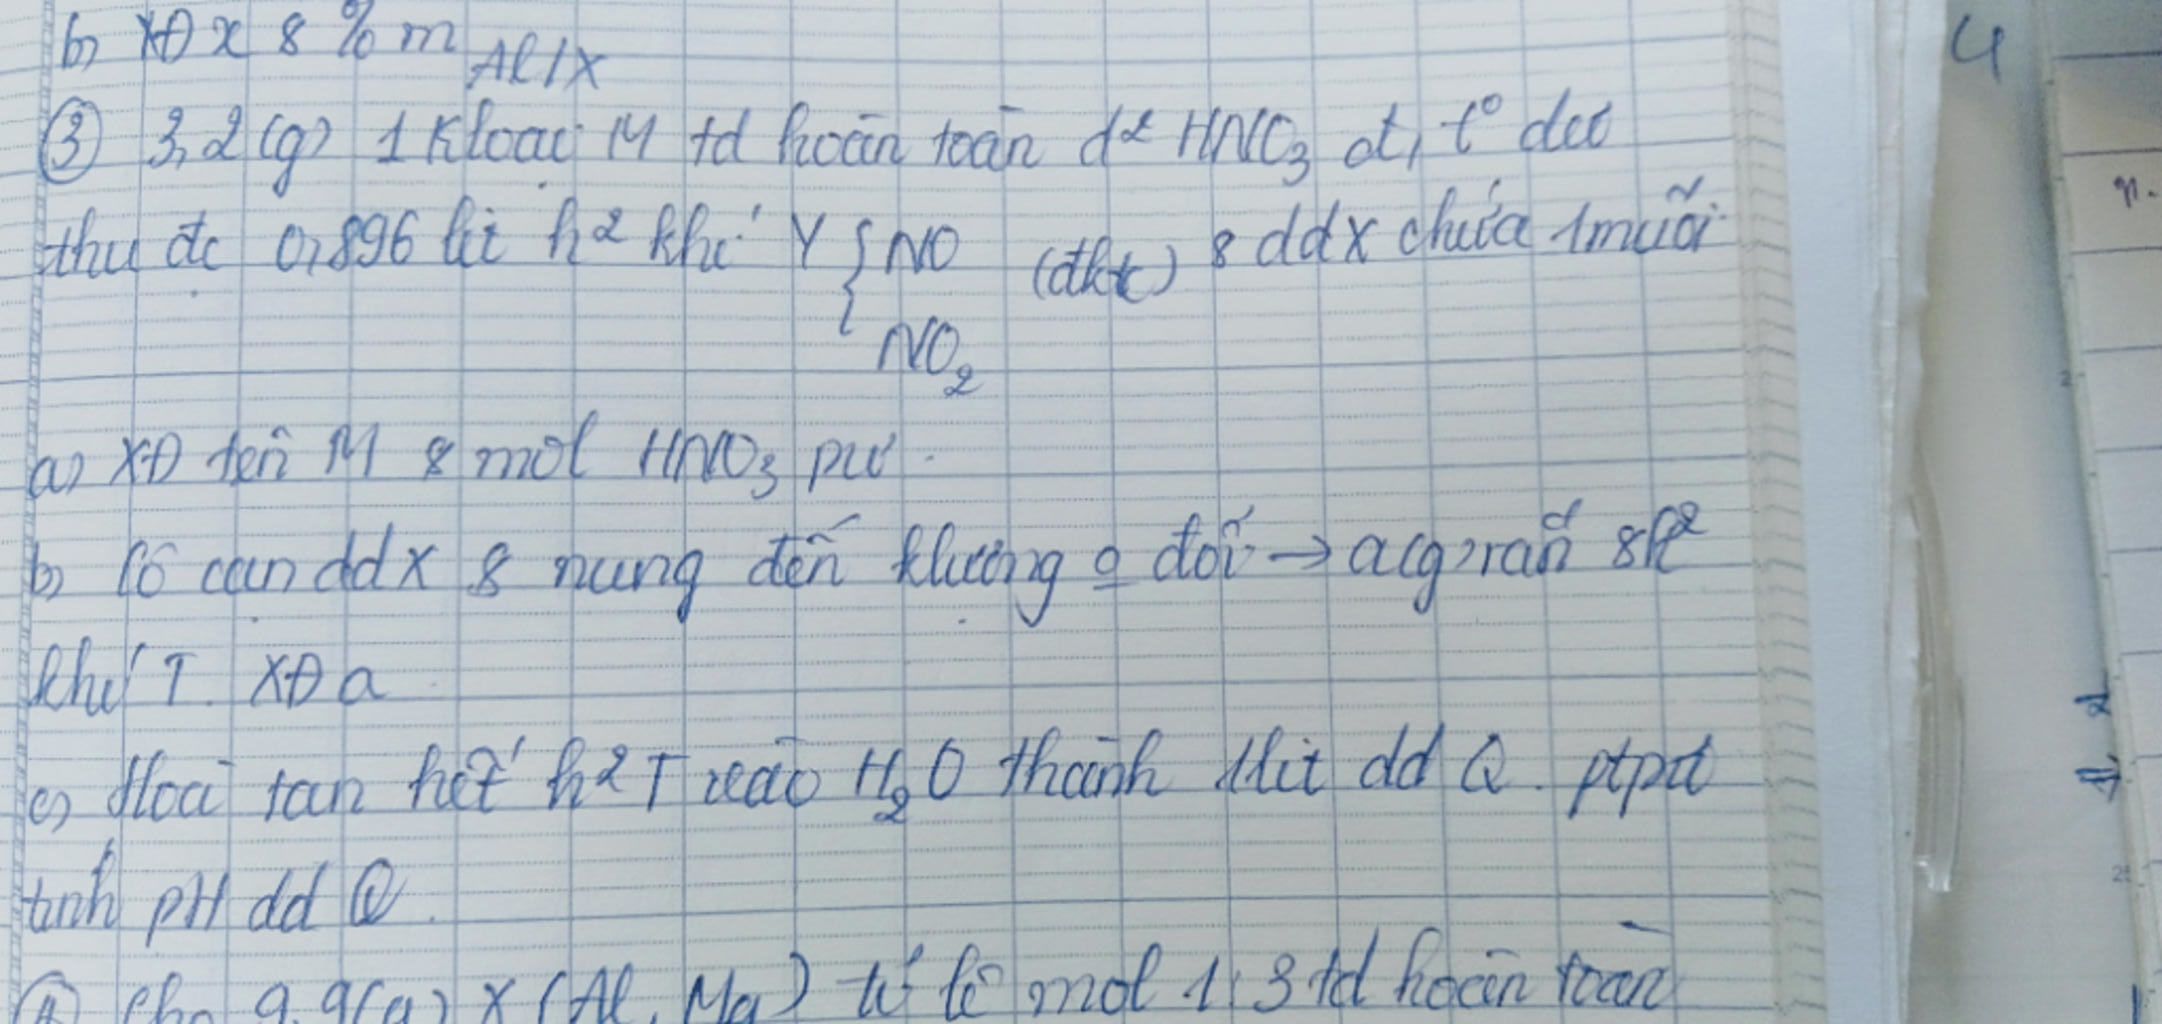 b) XĐ x & % m Al/X
③ 3,2 (g) 1 Kloại M td hoàn toàn d² HNO₃ đ, t° dư
thu đc 0,896 lít h² khí Y { NO (đktc) & ddX chứa 1 muối
NO₂
a) XĐ tên M & mol HNO₃ pư.
b) Cô cạn ddX & nung đến klượng o đổi → a(g) rắn & h²
khí T. XĐ a
c) Hoà tan hết h² T vào H₂O thành 1 lít dd Q. ptpư
tính pH dd Q.
④ Cho 9,9(g) X (Al, Mg) tỉ lệ mol 1:3 td hoàn toàn
4
n.
2
⇒